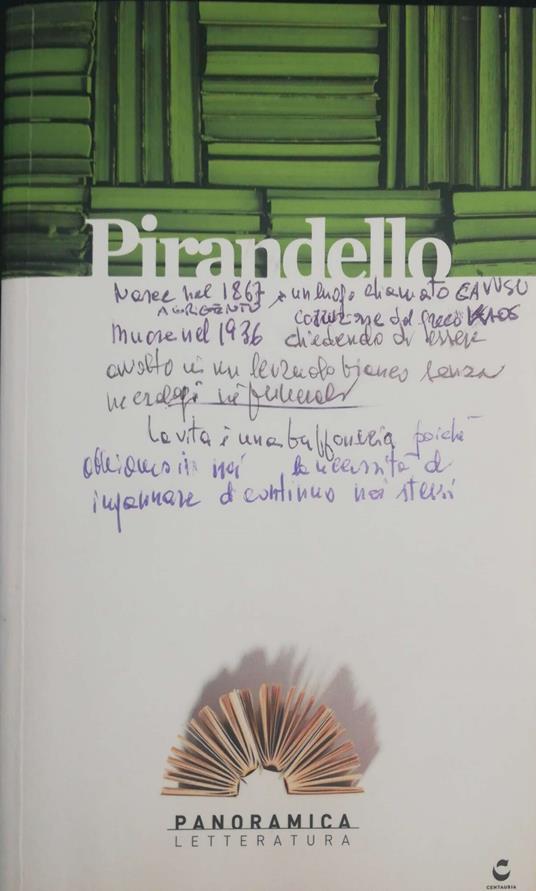 Pirandello
Nasce nel 1867 a un luogo chiamato CAVUSU
AGRIGENTO corruzione dal greco KAOS
Muore nel 1936 chiedendo di essere
avvolto in un lenzuolo bianco senza
necrologi né funerali
La vita è una buffoneria poiché
abbiamo in noi la necessità di
ingannare di continuo noi stessi
PANORAMICA
LETTERATURA
CENTAURIA